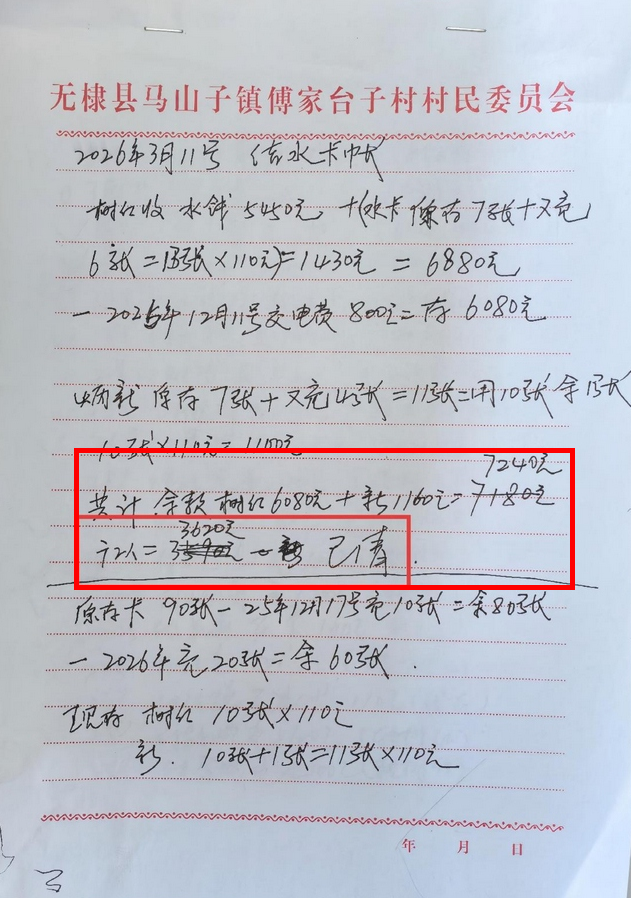 无棣县马山子镇傅家台子村村民委员会
2026年3月11号 结水卡帐
树红收 水钱 5450元 +(水卡 原存 7张+又充
6张=13张×110元)=1430元 = 6880元
一 2025年12月11号交电费 800元=存 6080元
炳新 原存 7张+又充4张=11张=用10张余1张
10张×110元=1100元
7240元
共计 余款 树红6080元+新1160元=7180元
3620元
÷2人= 3590元 已清
原存卡 90张一25年12月17号充10张=余80张
一 2026年充20张=余60张.
现存 树红 10张×110元
新. 10张+1张=11张×110元
年 月 日